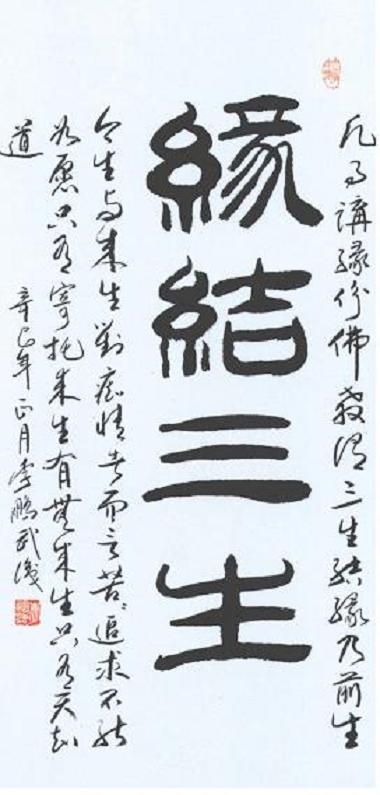 緣結三生
凡事講緣份佛教謂三生結緣乃前生
今生与来生對痴情者而言苦苦追求不能
如愿只有寄托来生有無来生只有天知
道
辛巳年正月李鹏武識